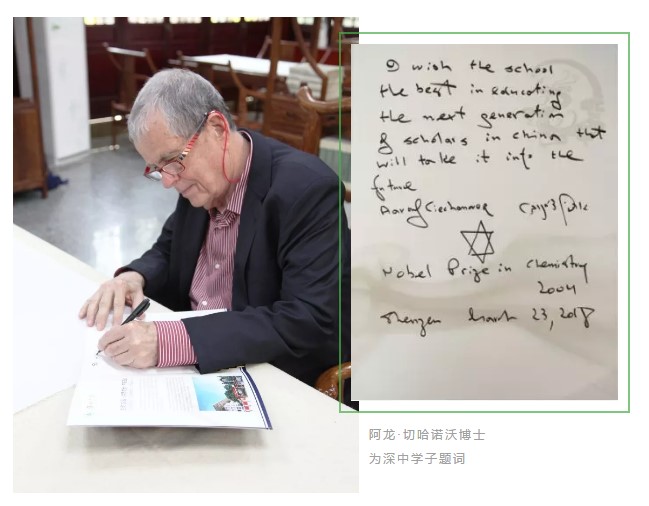 I wish the school
the best in educating
the next generation
of scholars in china that
will take it into the
future
Aaron Ciechanover
Nobel Prize in chemistry
2004
Shenzen March 23, 2018
阿龙·切哈诺沃博士
为深中学子题词